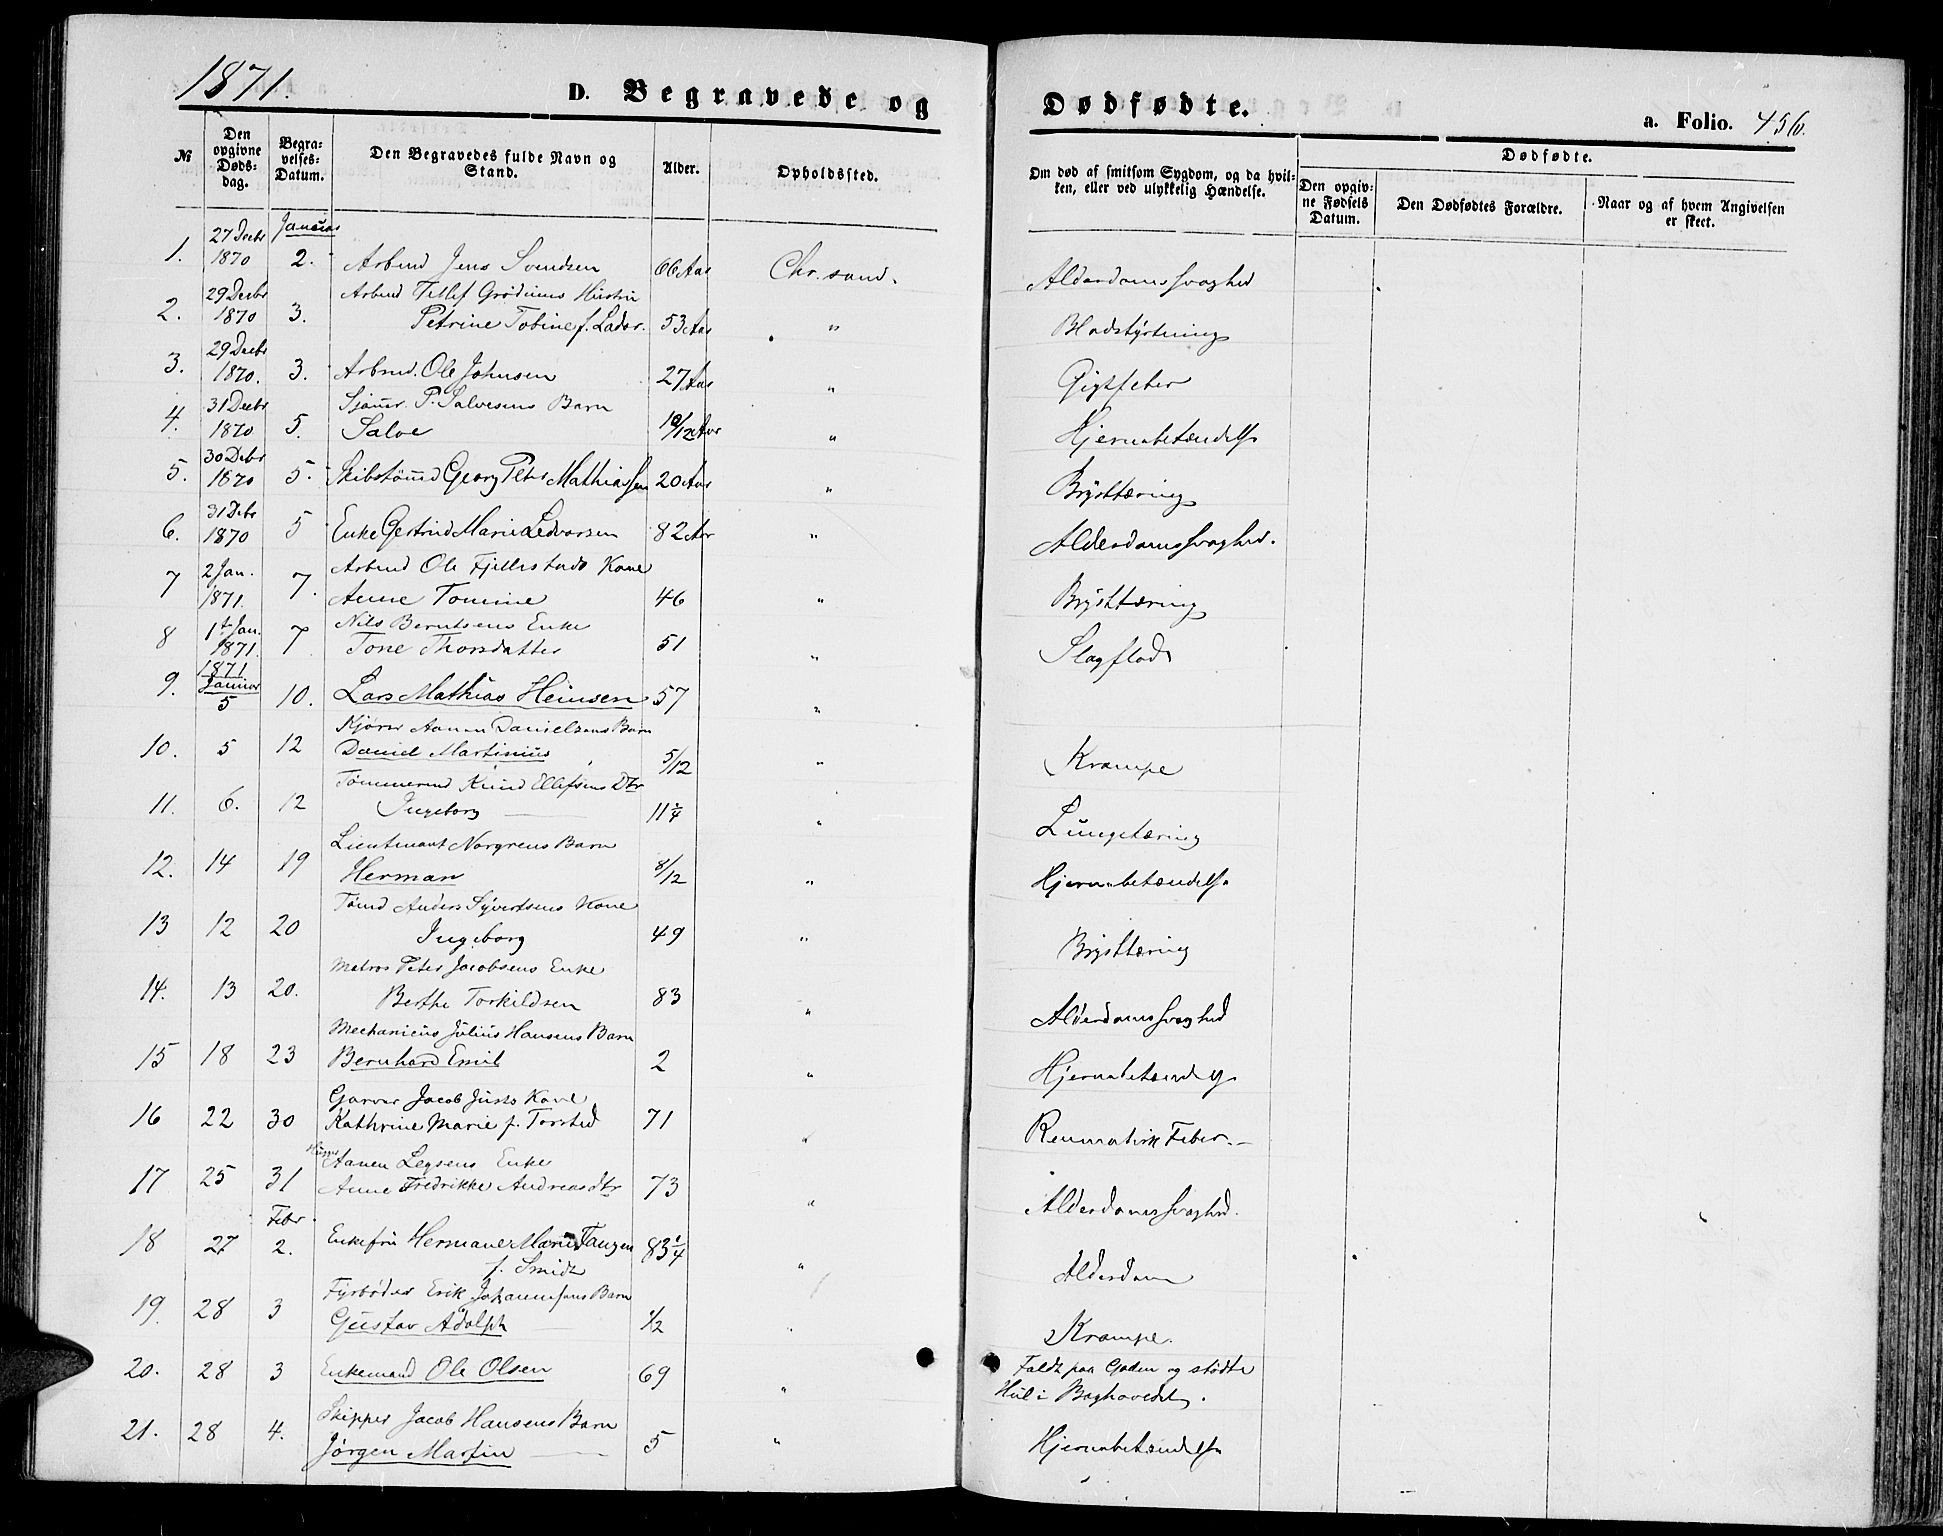 1871.
D. Begravede og
Dødfødte.
a. Folio. 456.
№
Den opgivne Døds-dag.
Begra-velses-Datum.
Den Begravedes fulde Navn og Stand.
Alder.
Opholdssted.
Om død af smitsom Sygdom, og da hvil-ken, eller ved ulykkelig Hændelse.
Dødfødte.
Den opgiv-ne Fødsels Datum.
Den Dødfødtes Forældre.
Naar og af hvem Angivelsen er skeet.
27 Decbr Januar
1. 1870 2. Arbmd Jens Svendsen 66 Aar Chr.sand. Alderdomssvaghed
29 Decbr Arbmd Tellef Hustru
2. 1870 3. Petrine Tobine f. 53 Aar " Blodstyrtning
29 Decbr
3. 1870. 3. Arbmd. Ole Johnsen 27 Aar " Gigtfeber
31 Decbr Sjømr. P. Salvesens Barn
4. 1870 5. Salve 10/12 Aar " Hjernebetændelse
30 Debr
5. 1870 5. Skibstømd Georg Peter Mathiassen 20 Aar " Brysttæring
31 Debr
6. 1870 5 Enke Gertrud Marie Ledvorsen 82 Aar " Alderdomssvaghed.
2 Jan. Arbmd Ole Fjellestads Kone
7 1871. 7. Anne Tomine 46 " Brysttæring
1st Jan. Nils Berntsens Enke
8 1871. 7 Tone Thorsdatter 51 " Slagflod
1871
Januar
9. 5 10. Lars Mathias Heinsen 57 "
Kjører Aanen Danielsens Barn
10. 5 12 Daniel Martinius 5/12 " Krampe
Tømmermd Knud Ellefsens Dtr
11. 6. 12 Ingeborg 11 1/4 " Lungetæring
Lieutenant Norgrens Barn
12. 14 19 Herman 8/12 " Hjernebetændelse
Tømd Anders Syvertsens Kone
13 12 20 Ingeborg 49 " Brysttæring
Matros Peter Jacobsens Enke
14. 13 20. Berthe Torkildsen 83 " Alderdomssvaghed
Mechanicus Julius Hansens Barn
15 18 23 Bernhard Emil 2 " Hjernebetændelse
Garver Jacob Justs Kone
16 22 30 Kathrine Marie f. Torsted 71 " Reumatisk Feber.
Aanen Enke
17 25 31 Anne Fredrikke Andreasdtr 73 " Alderdomssvaghed.
Febr.
18 27 2. Enkefru Hermane Marie Tangen 83 1/4 " Alderdom
f. Smidt
Fyrbøder Erik Johannesens Barn
19. 28 3 Gustav Adolph 1/2 " Krampe.
20. 28 3 Enkemand Ole Olsen 69 " Faldt paa Gaden og stødte
Hul i Baghovedet.
Skipper Jacob Hansens Barn
21. 28 4. Jørgen Martin 5 " Hjernebetændelse